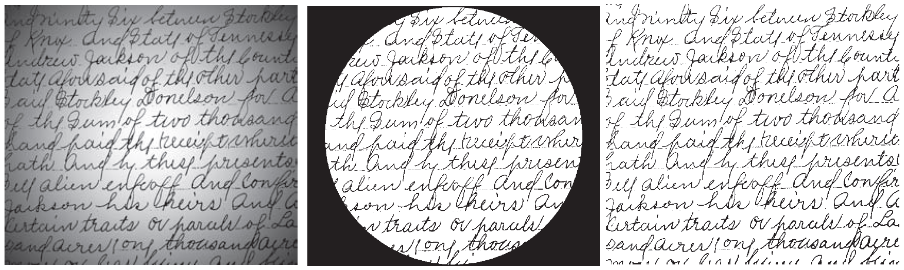 and Ninety Six between Stockley
of Knox and State of Tennessee
Andrew Jackson of the Count
tate aforesaid of the other part
said Stockley Donelson for a
of the Sum of two thousand
hand paid the receipt where
hath And by these presents
alien enfeoff And Confir
Jackson his heirs And a
certain traits or parcels of La
sand acres (one thousand acre
Six between
and State of Ten
rew Jackson of the Co
aforesaid of the other p
Stockley Donelson for
the Sum of two thousan
and paid the receipt wh
th And by these presen
alien enfeoff And Con
son his heirs And
n traits or parcels
es (one thous
and Ninety Six between Stockley
of Knox and State of Tennessee
Andrew Jackson of the Count
tate aforesaid of the other part
said Stockley Donelson for a
of the Sum of two thousand
hand paid the receipt where
hath And by these presents
alien enfeoff And Confir
Jackson his heirs And a
certain traits or parcels of La
sand acres (one thousand acre